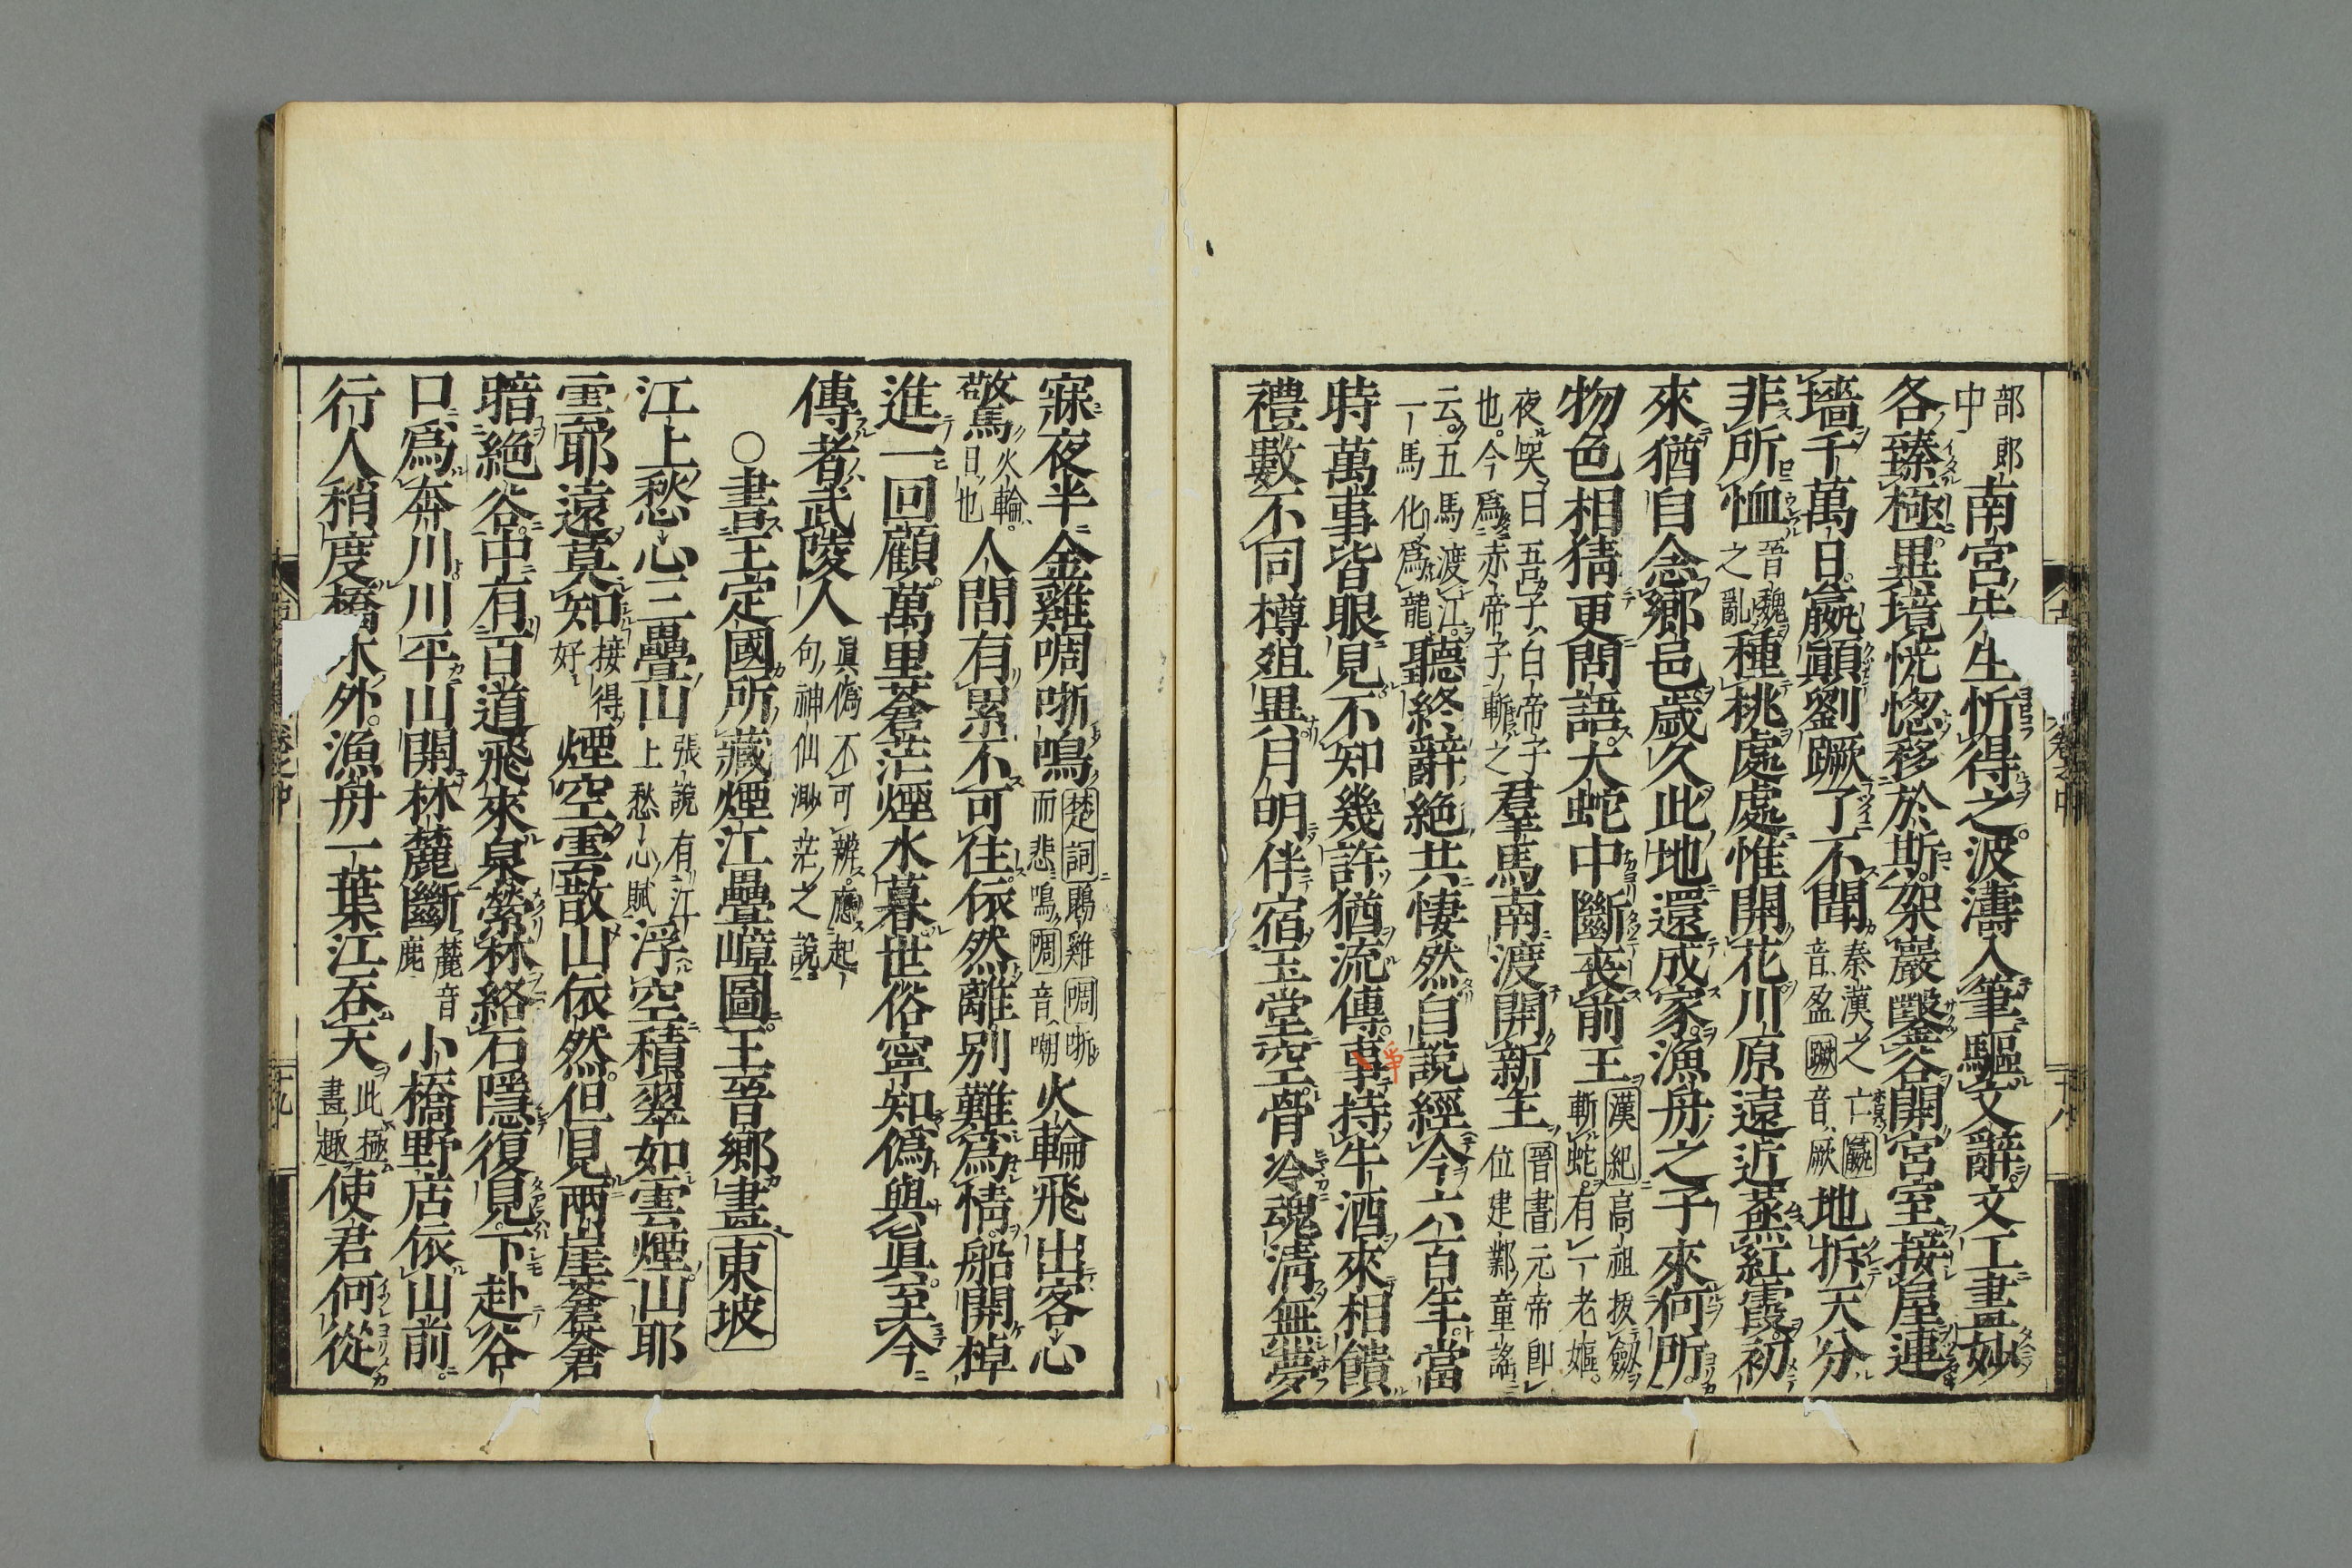 部郎中南宮先生忻得之波濤入筆驅文辭文工畫妙
各臻極異境恍惚移於斯架巖鑿谷開宮室接屋連
墻千萬日嬴顚劉蹶了不聞秦漢之亡嬴音盈蹶音厥地拆天分
非所恤晉魏之亂種桃處處惟開花川原遠近蒸紅霞初
來猶自念鄉邑歲久此地還成家漁舟之子來何所
物色相猜更問語大蛇中斷喪前王漢紀高祖拔劔斬蛇有一老嫗
夜哭曰吾子白帝子也今爲赤帝子斬之羣馬南渡開新主晉書元帝卽位建鄴童謠
云五馬渡江一馬化爲龍聽終辭絶共悽然自說經今六百年當
時萬事皆眼見不知幾許猶流傳事爭持牛酒來相饋
禮數不同樽俎異月明伴宿玉堂空骨冷魂淸無夢
寐夜半金雞啁哳鳴楚詞鵾雞啁哳而悲鳴啁音嘲火輪飛出客心
驚火輪日也人間有累不可住依然離別難爲情船開棹
進一回顧萬里蒼茫煙水暮世俗寧知僞與眞至今
傳者武陵人眞僞不可辨應起句神仙渺茫之說
○書王定國所藏煙江疊嶂圖王晉鄉畫東坡
江上愁心三疊山張說有江上愁心賦浮空積翠如雲煙山耶
雲耶遠莫知接得好煙空雲散山依然但見兩崖蒼蒼
暗絶谷中有百道飛來泉縈林絡石隱復見下赴谷
口爲奔川川平山開林麓斷麓音鹿小橋野店依山前
行人稍度橋木外漁舟一葉江呑天此極畫趣使君何從
卷之中
十八
卷之中
十九